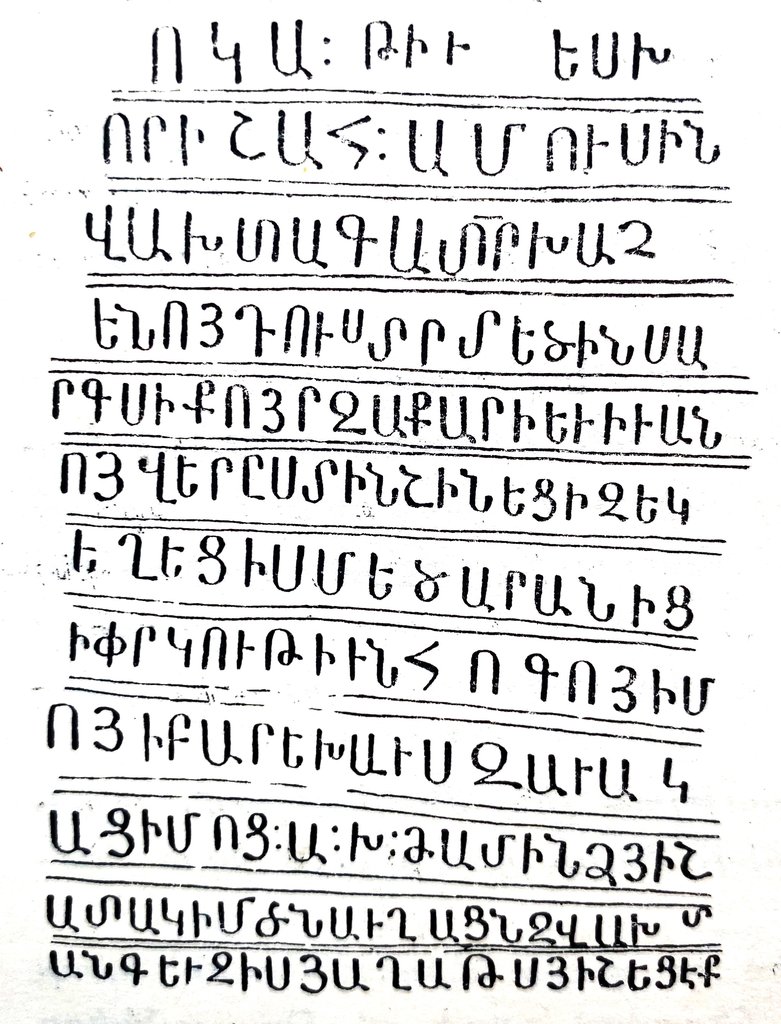 Ո Կ Ա : ԹԻՒ ԵՍԽ
ՈՐԻ ՇԱՀ: ԱՄՈՒՍԻՆ
ՎԱԽՏԱԳԱՏՈՐԽԱՉ
ԵՆՈՅԴՈՒՍՏՐՄԵԾԻՆՍԱ
ՐԳՍԻՔՈՅՐԶԱՔԱՐԻԵՒԻՒԱՆ
ՈՅՎԵՐԸՍՏԻՆՇԻՆԵՑԻԶԵԿ
ԵՂԵՑԻՍՄԵԾԱՐԱՆԻՑ
ԻՓՐԿՈՒԹԻՒՆՀՈԳՈՅԻՄ
ՈՅԻԲԱՐԵԽԱՒՍԶԱՒԱԿ
ԱՑԻՄՈՑ:Ա:Խ:ԺԱՄԻՆՁՅԻՇ
ԱՏԱԿԻՄԾՆԱՒՂԱՑՆԶՎԱԽՏ
ԱՆԳԵՒԶԻՍՅԱՂԱԹՍՅԻՇԵՑԷՔ